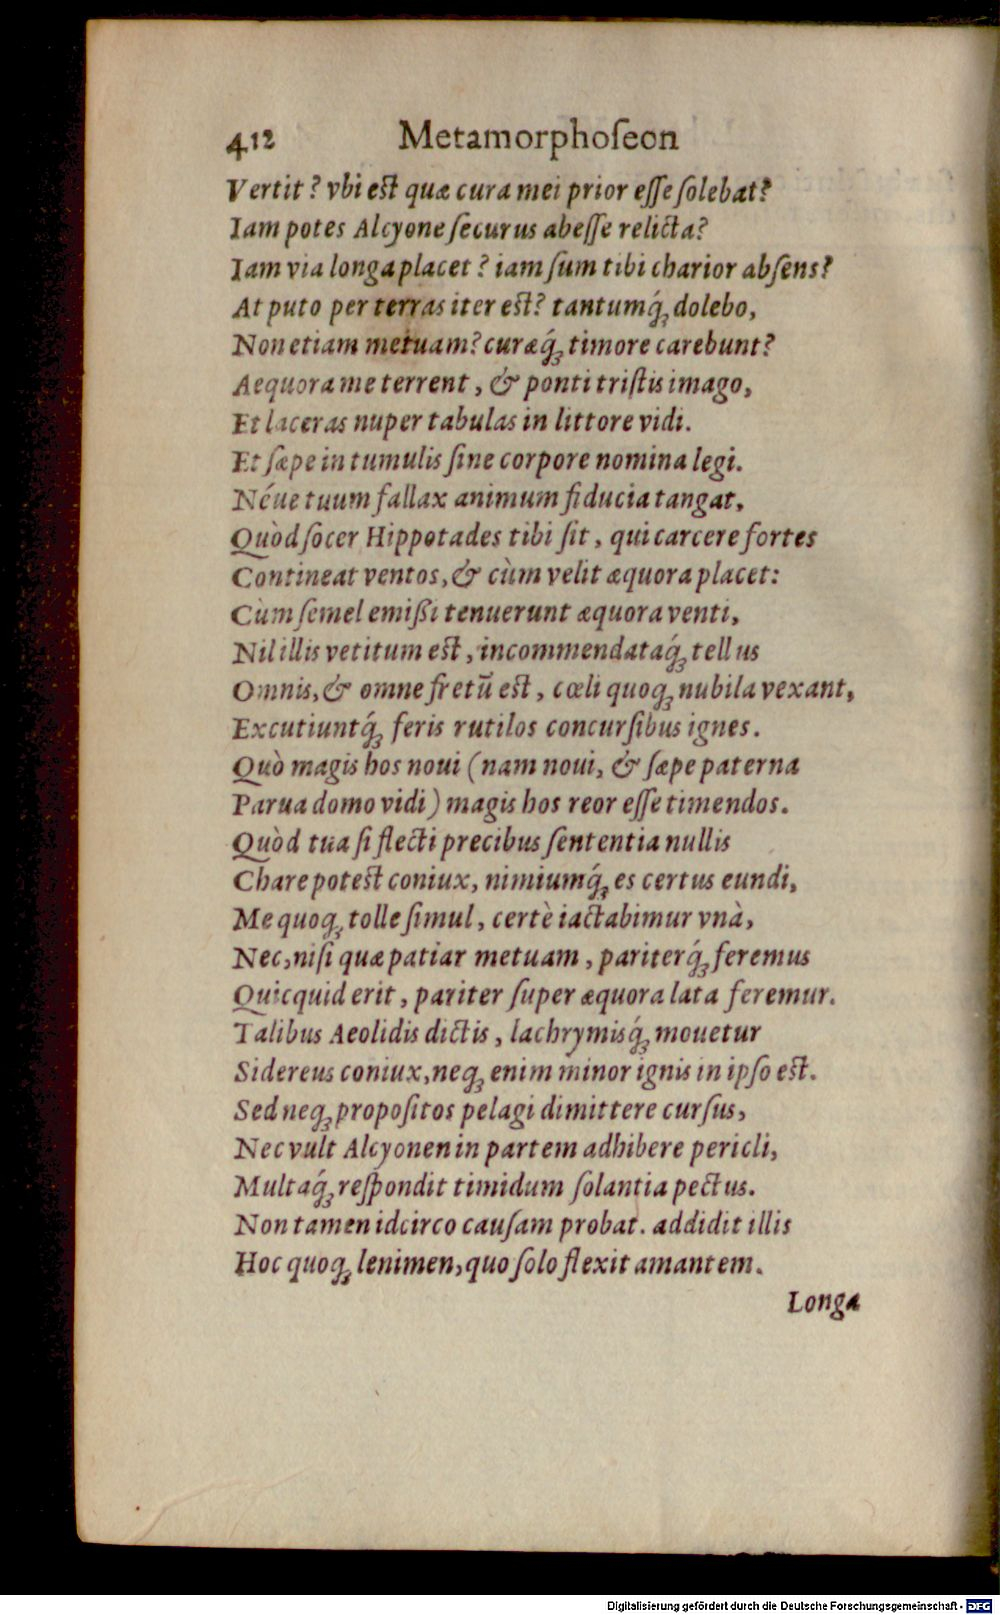 412 Metamorphoſeon
Vertit? vbi est quæ cura mei prior eſſe ſolebat?
Iam potes Alcyone ſecurus abeſſe relicta?
Iam via longa placet? iam ſum tibi charior abſens?
At puto per terras iter est? tantumq́ꝫ dolebo,
Non etiam metuam? curæq́ꝫ timore carebunt?
Aequora me terrent, & ponti triſtis imago,
Et laceras nuper tabulas in littore vidi.
Et ſæpe in tumulis ſine corpore nomina legi.
Néue tuum fallax animum fiducia tangat,
Quòd ſocer Hippotades tibi ſit, qui carcere fortes
Contineat ventos, & cùm velit æquora placet:
Cùm ſemel emißi tenuerunt æquora venti,
Nil illis vetitum est, incommendataq́ꝫ tellus
Omnis, & omne fretū est, cœli quoqꝫ nubila vexant,
Excutiuntq́ꝫ feris rutilos concurſibus ignes.
Quò magis hos noui (nam noui, & ſæpe paterna
Parua domo vidi) magis hos reor eſſe timendos.
Quòd tua ſi flecti precibus ſententia nullis
Chare potest coniux, nimiumq́ꝫ es certus eundi,
Me quoqꝫ tolle ſimul, certè iactabimur vnà,
Nec, niſi quæ patiar metuam, pariterq́ꝫ feremus
Quicquid erit, pariter ſuper æquora lata feremur.
Talibus Aeolidis dictis, lachrymisq́ꝫ mouetur
Sidereus coniux, neqꝫ enim minor ignis in ipſo est.
Sed neqꝫ propoſitos pelagi dimittere curſus,
Nec vult Alcyonen in partem adhibere pericli,
Multaq́ꝫ reſpondit timidum ſolantia pectus.
Non tamen idcirco cauſam probat. addidit illis
Hoc quoqꝫ lenimen, quo ſolo flexit amantem.
Longa
Digitalisierung gefördert durch die Deutsche Forschungsgemeinschaft - DFG